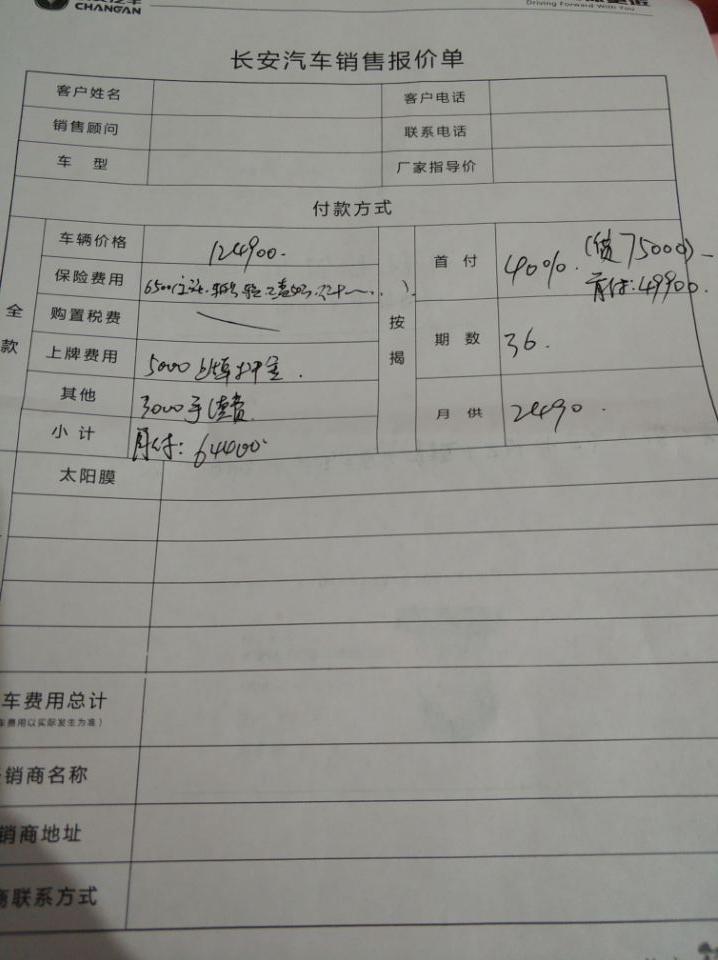 CHANGAN
Driving Forward With You
长安汽车销售报价单
客户姓名 客户电话
销售顾问 联系电话
车 型 厂家指导价
付款方式
全款
车辆价格 124900.
保险费用 6500
购置税费
上牌费用 5000 押金.
其他 3000手续费
小计 首付: 64400.
按揭
首付 40%. (贷75000)
首付:49900.
期数 36.
月供 2490.
太阳膜
车费用总计
车费用以实际发生为准)
销商名称
销商地址
商联系方式